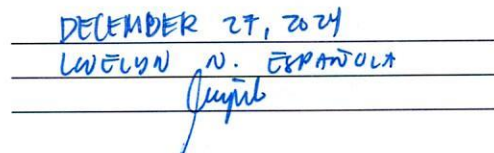 DECEMBER 27, 2024
LUVELYN N. ESPAÑOLA